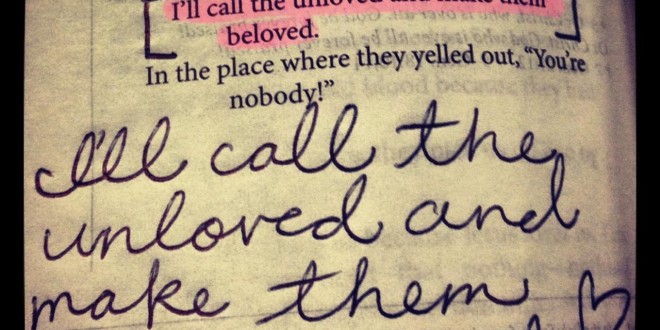 I'll call the unloved and make them
beloved.
In the place where they yelled out, “You're
nobody!”
I'll call the
unloved and
make them